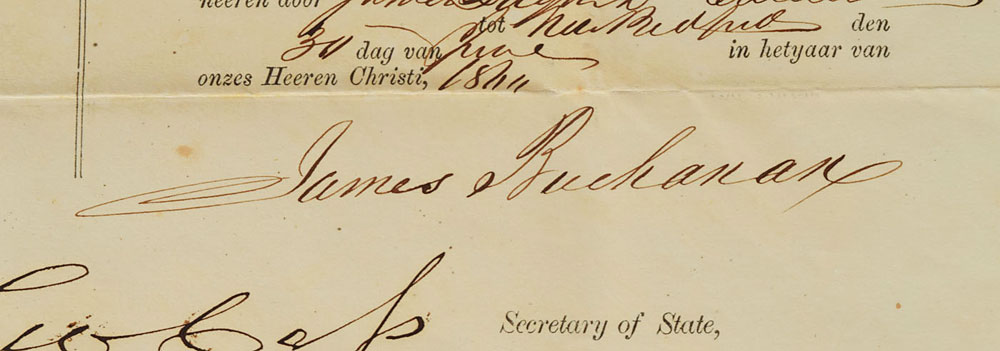 heeren door James
tot New Bedford den
30 dag van June in hetyaar van
onzes Heeren Christi, 1860
James Buchanan
Lew Cass
Secretary of State,